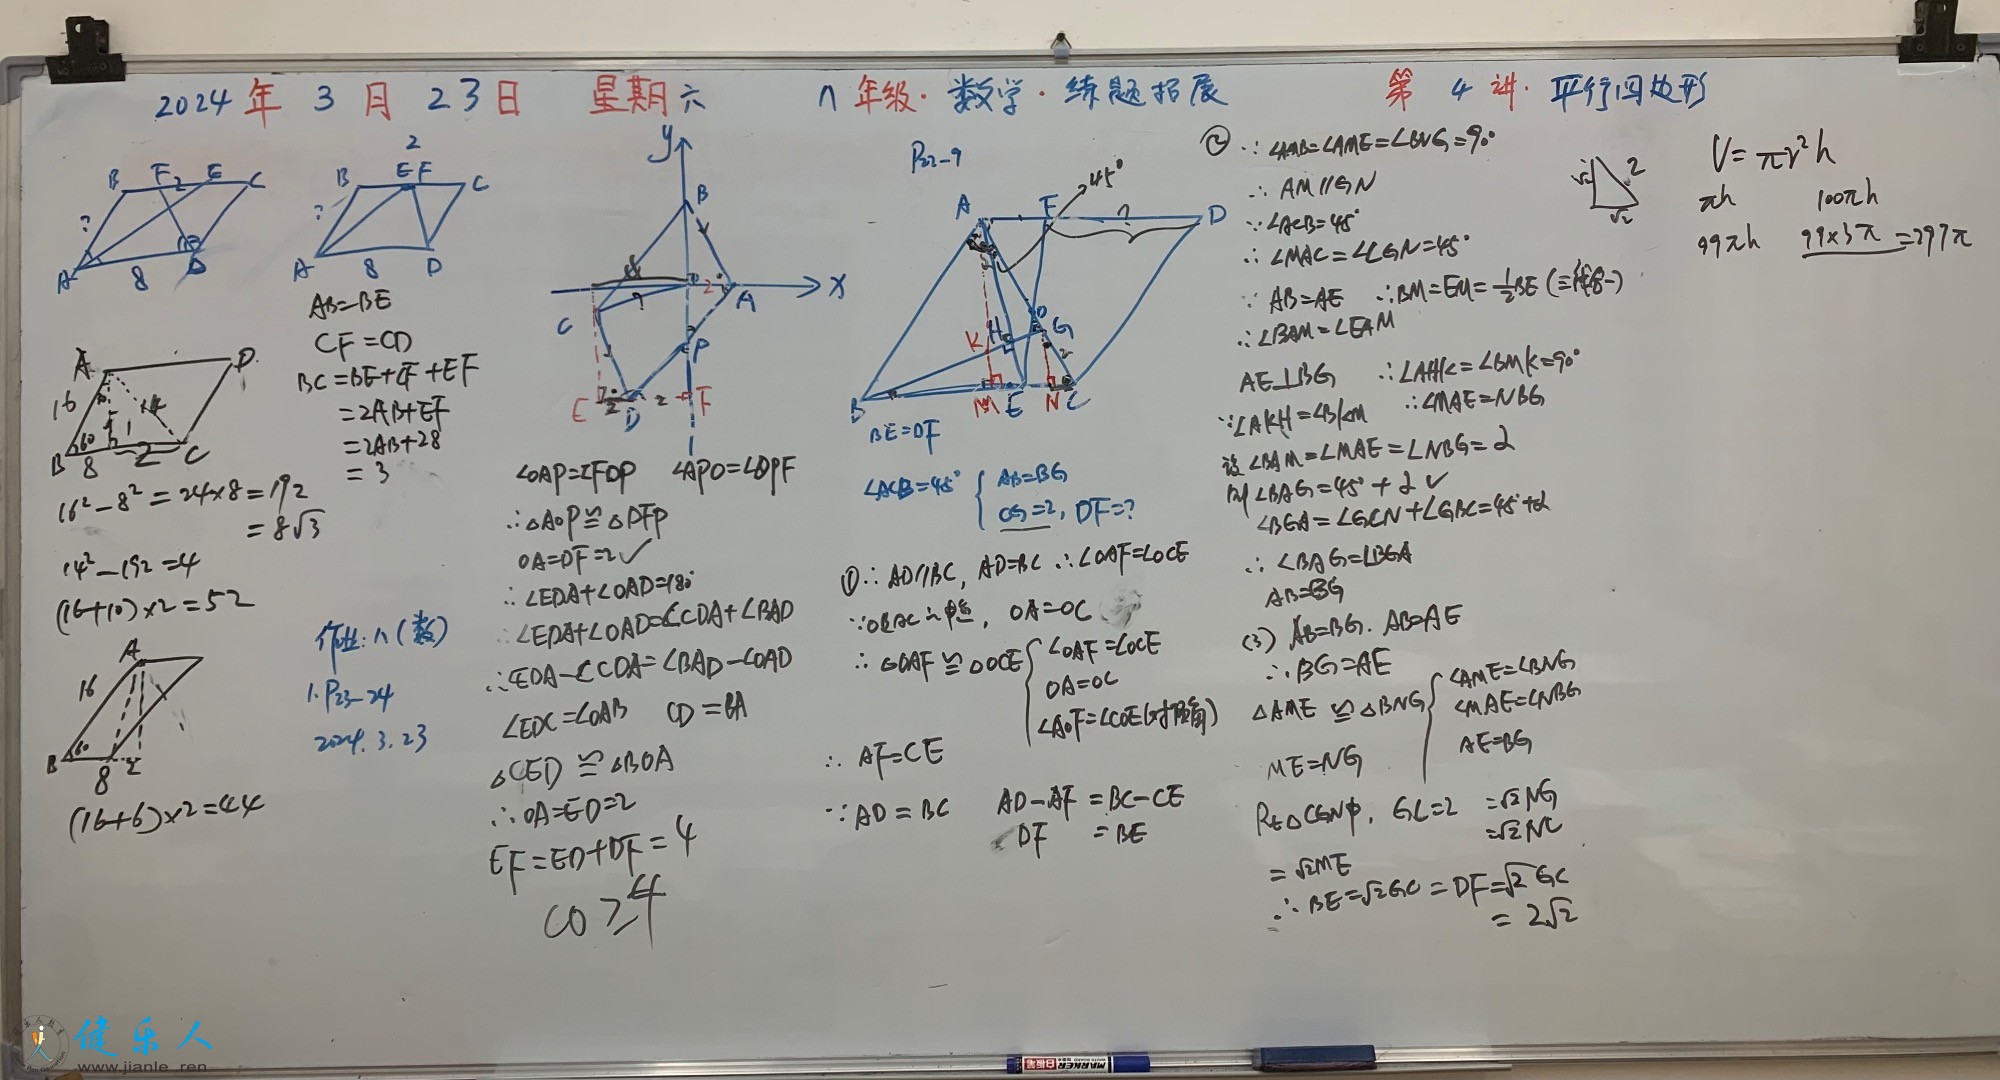 2024年3月23日 星期六 八年级·数学·练题拓展 第4讲·平行四边形
B F 2 E C
?
A 8 D
2
B E F C
?
A 8 D
AB=BE
CF=CD
BC=BE+CF+EF
=2AB+EF
=2AB+28
=3
A D
16 14
60
B 8 2 C
16²-8²=24×8=192
=8√3
14²-192=4
(16+10)×2=52
A
16
B 60
8 2
(16+6)×2=44
作业:八(数)
1.P23-24
2024.3.23
y
B
x
A
2
C
P
E D 2 F
∠OAP=∠FDP ∠APO=∠DPF
∴△AOP≌△DFP
OA=DF=2✓
∴∠EDA+∠OAD=180°
∴∠EDA+∠OAD=∠CDA+∠BAD
∴∠EDA-∠CDA=∠BAD-∠OAD
∠EDC=∠OAB CD=BA
△CED≌△BOA
∴OA=ED=2
EF=ED+DF=4
CO≥4
P22-9
45°
A F ? D
O
K H G
2
B M E N C
BE=DF
∠ACB=45° { AB=BG
CG=2, DF=?
①∵AD∥BC, AD=BC ∴∠OAF=∠OCE
∵O是AC的中点, OA=OC
∴△OAF≌△OCE { ∠OAF=∠OCE
OA=OC
∠AOF=∠COE(对顶角)
∴AF=CE
∵AD=BC AD-AF=BC-CE
DF=BE
② ∵∠AMB=∠AME=∠BNG=90°
∴AM∥GN
∵∠ACB=45°
∴∠MAC=∠CGN=45°
∵AB=AE ∴BM=EM=½BE(三线合一)
∴∠BAM=∠EAM
AE⊥BG ∴∠AHK=∠BMK=90°
∵∠AKH=∠BKM ∴∠MAE=NBG
设∠BAM=∠MAE=∠NBG=α
则∠BAG=45°+α✓
∠BGA=∠GCN+∠GBC=45°+α
∴∠BAG=∠BGA
AB=BG
(3) AB=BG. AB=AE
∴BG=AE
△AME≌△BNG { ∠AME=∠BNG
∠MAE=∠NBG
AE=BG
ME=NG
Rt△CGN中, GC=2 =√2NG
=√2NC
=√2ME
∴BE=√2GC=DF=√2GC
=2√2
√2 2
√2
V=πr²h
πh 100πh
99πh 99×3π=297π
MARKER
健乐人
www.jianle.ren